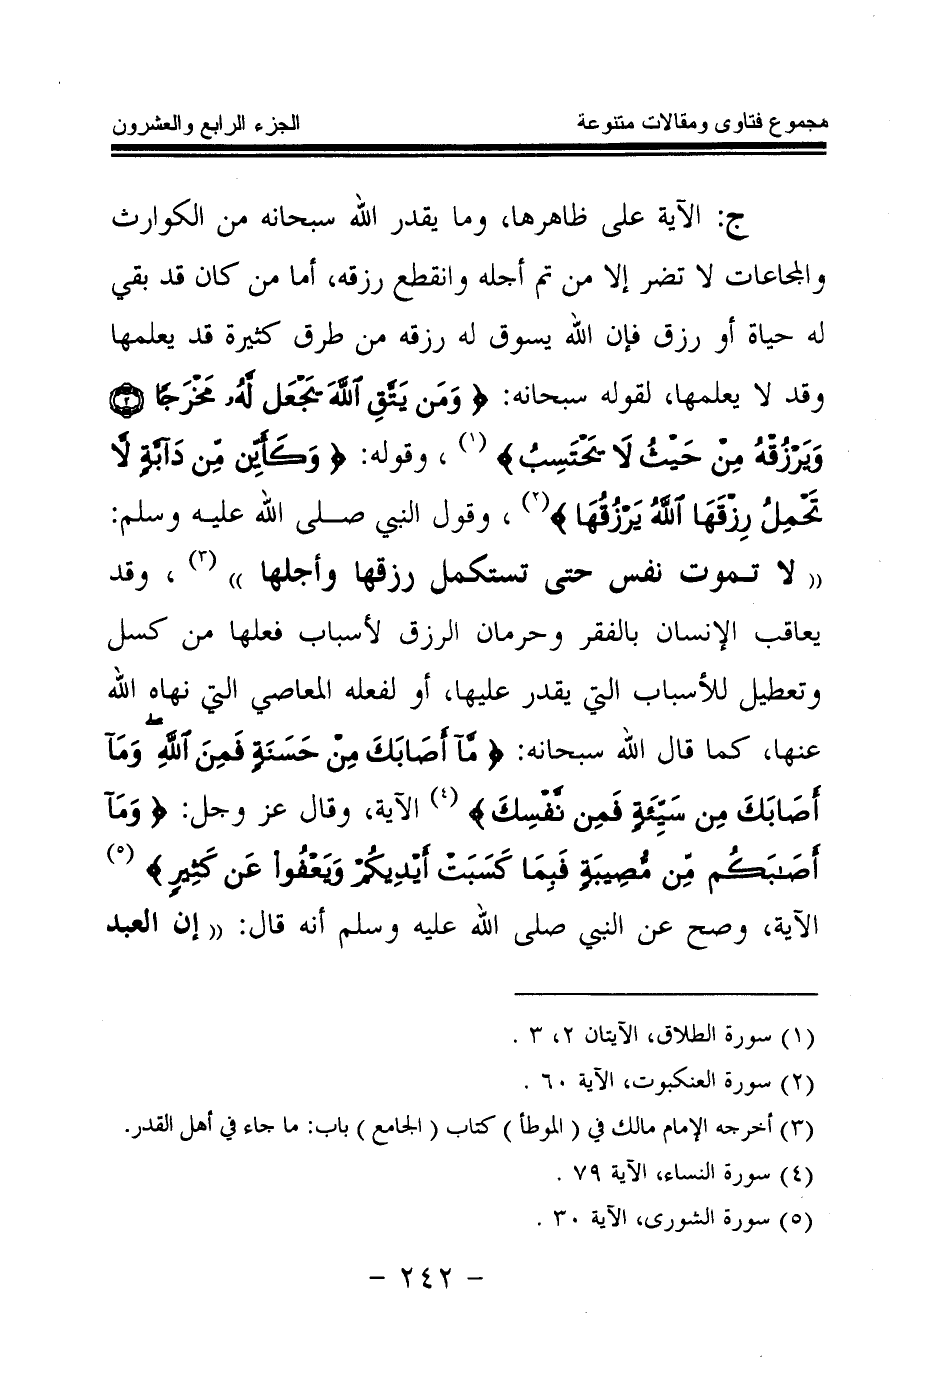 مجموع فتاوى ومقالات متنوعة الجزء الرابع والعشرون
ج: الآية على ظاهرها، وما يقدر الله سبحانه من الكوارث
والمجاعات لا تضر إلا من تم أجله وانقطع رزقه، أما من كان قد بقي
له حياة أو رزق فإن الله يسوق له رزقه من طرق كثيرة قد يعلمها
وقد لا يعلمها، لقوله سبحانه: ﴿ وَمَن يَتَّقِ ٱللَّهَ يَجْعَل لَّهُۥ مَخْرَجًا ۝٢
وَيَرْزُقْهُ مِنْ حَيْثُ لَا يَحْتَسِبُ ﴾ (١) ، وقوله: ﴿ وَكَأَيِّن مِّن دَآبَّةٍ لَّا
تَحْمِلُ رِزْقَهَا ٱللَّهُ يَرْزُقُهَا ﴾(٢) ، وقول النبي صلى الله عليه وسلم:
« لا تموت نفس حتى تستكمل رزقها وأجلها » (٣) ، وقد
يعاقب الإنسان بالفقر وحرمان الرزق لأسباب فعلها من كسل
وتعطيل للأسباب التي يقدر عليها، أو لفعله المعاصي التي نهاه الله
عنها، كما قال الله سبحانه: ﴿ مَّآ أَصَابَكَ مِنْ حَسَنَةٍ فَمِنَ ٱللَّهِ ۖ وَمَآ
أَصَابَكَ مِن سَيِّئَةٍ فَمِن نَّفْسِكَ ﴾ (٤) الآية، وقال عز وجل: ﴿ وَمَآ
أَصَـٰبَكُم مِّن مُّصِيبَةٍ فَبِمَا كَسَبَتْ أَيْدِيكُمْ وَيَعْفُوا۟ عَن كَثِيرٍ ﴾ (٥)
الآية، وصح عن النبي صلى الله عليه وسلم أنه قال: « إن العبد
(١) سورة الطلاق، الآيتان ٢، ٣ .
(٢) سورة العنكبوت، الآية ٦٠ .
(٣) أخرجه الإمام مالك في ( الموطأ ) كتاب ( الجامع ) باب: ما جاء في أهل القدر.
(٤) سورة النساء، الآية ٧٩ .
(٥) سورة الشورى، الآية ٣٠ .
- ٢٤٢ -